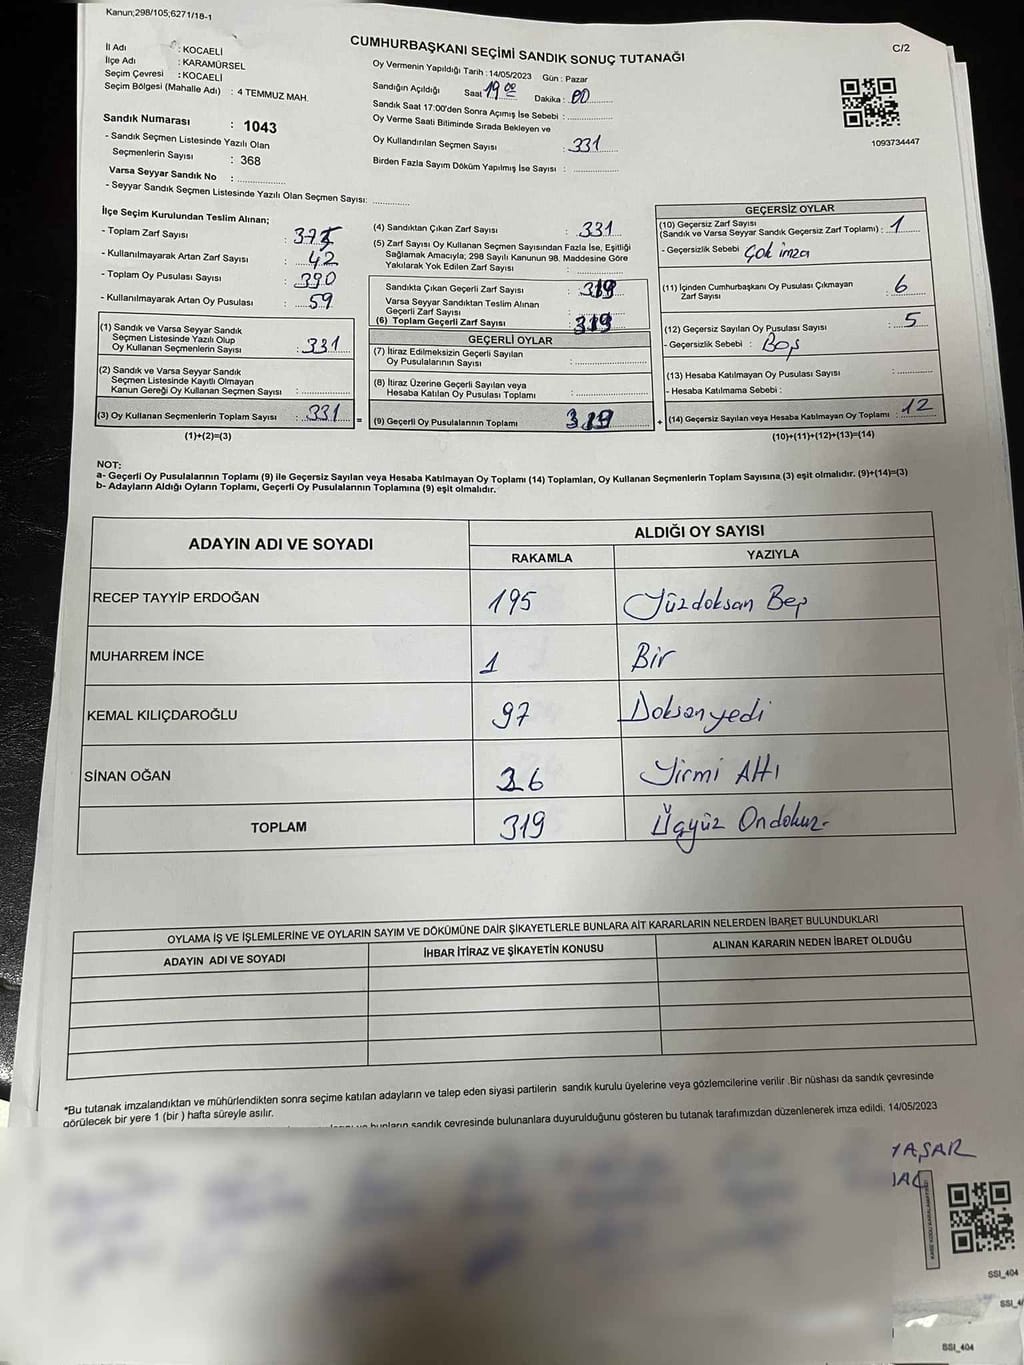 Kanun;298/105;6271/18-1
C/2
CUMHURBAŞKANI SEÇİMİ SANDIK SONUÇ TUTANAĞI
İl Adı : KOCAELİ
İlçe Adı : KARAMÜRSEL
Seçim Çevresi : KOCAELİ
Seçim Bölgesi (Mahalle Adı) : 4 TEMMUZ MAH.
Sandık Numarası : 1043
- Sandık Seçmen Listesinde Yazılı Olan
Seçmenlerin Sayısı : 368
Varsa Seyyar Sandık No : ..............
- Seyyar Sandık Seçmen Listesinde Yazılı Olan Seçmen Sayısı: ............
Oy Vermenin Yapıldığı Tarih : 14/05/2023 Gün : Pazar
Sandığın Açıldığı Saat 19 00 Dakika : 00
Sandık Saat 17:00'den Sonra Açımış İse Sebebi : ..............
Oy Verme Saati Bitiminde Sırada Bekleyen ve
Oy Kullandırılan Seçmen Sayısı : 331
Birden Fazla Sayım Döküm Yapılmış İse Sayısı : ..............
1093734447
İlçe Seçim Kurulundan Teslim Alınan;
- Toplam Zarf Sayısı :
- Kullanılmayarak Artan Zarf Sayısı : 42
- Toplam Oy Pusulası Sayısı : 390
- Kullanılmayarak Artan Oy Pusulası : 59
(1) Sandık ve Varsa Seyyar Sandık
Seçmen Listesinde Yazılı Olup
Oy Kullanan Seçmenlerin Sayısı : 331
(2) Sandık ve Varsa Seyyar Sandık
Seçmen Listesinde Kayıtlı Olmayan
Kanun Gereği Oy Kullanan Seçmen Sayısı : ..............
(3) Oy Kullanan Seçmenlerin Toplam Sayısı : 331 =
(1)+(2)=(3)
(4) Sandıktan Çıkan Zarf Sayısı : 331
(5) Zarf Sayısı Oy Kullanan Seçmen Sayısından Fazla İse, Eşitliği
Sağlamak Amacıyla; 298 Sayılı Kanunun 98. Maddesine Göre
Yakılarak Yok Edilen Zarf Sayısı : ..............
Sandıkta Çıkan Geçerli Zarf Sayısı : 319
Varsa Seyyar Sandıktan Teslim Alınan
Geçerli Zarf Sayısı :
(6) Toplam Geçerli Zarf Sayısı : 319
GEÇERLİ OYLAR
(7) İtiraz Edilmeksizin Geçerli Sayılan
Oy Pusulalarının Sayısı : ..............
(8) İtiraz Üzerine Geçerli Sayılan veya
Hesaba Katılan Oy Pusulası Toplamı : ..............
(9) Geçerli Oy Pusulalarının Toplamı : 319 +
GEÇERSİZ OYLAR
(10) Geçersiz Zarf Sayısı
(Sandık ve Varsa Seyyar Sandık Geçersiz Zarf Toplamı) : 1
- Geçersizlik Sebebi : Çok imza
(11) İçinden Cumhurbaşkanı Oy Pusulası Çıkmayan
Zarf Sayısı : 6
(12) Geçersiz Sayılan Oy Pusulası Sayısı : 5
- Geçersizlik Sebebi : Boş
(13) Hesaba Katılmayan Oy Pusulası Sayısı : ............
- Hesaba Katılmama Sebebi :
(14) Geçersiz Sayılan veya Hesaba Katılmayan Oy Toplamı : 12
(10)+(11)+(12)+(13)=(14)
NOT:
a- Geçerli Oy Pusulalarının Toplamı (9) ile Geçersiz Sayılan veya Hesaba Katılmayan Oy Toplamı (14) Toplamları, Oy Kullanan Seçmenlerin Toplam Sayısına (3) eşit olmalıdır. (9)+(14)=(3)
b- Adayların Aldığı Oyların Toplamı, Geçerli Oy Pusulalarının Toplamına (9) eşit olmalıdır.
ADAYIN ADI VE SOYADI
ALDIĞI OY SAYISI
RAKAMLA YAZIYLA
RECEP TAYYİP ERDOĞAN 195 Yüzdoksan Beş
MUHARREM İNCE 1 Bir
KEMAL KILIÇDAROĞLU 97 Doksanyedi
SİNAN OĞAN 26 Yirmi Altı
TOPLAM 319 Üçyüz Ondokuz
OYLAMA İŞ VE İŞLEMLERİNE VE OYLARIN SAYIM VE DÖKÜMÜNE DAİR ŞİKAYETLERLE BUNLARA AİT KARARLARIN NELERDEN İBARET BULUNDUKLARI
ADAYIN ADI VE SOYADI İHBAR İTİRAZ VE ŞİKAYETİN KONUSU ALINAN KARARIN NEDEN İBARET OLDUĞU
*Bu tutanak imzalandıktan ve mühürlendikten sonra seçime katılan adayların ve talep eden siyasi partilerin sandık kurulu üyelerine veya gözlemcilerine verilir .Bir nüshası da sandık çevresinde
görülecek bir yere 1 (bir ) hafta süreyle asılır.
bunların sandık çevresinde bulunanlara duyurulduğunu gösteren bu tutanak tarafımızdan düzenlenerek imza edildi. 14/05/2023
YAŞAR
SSI_404
SSI_4
SSI_404